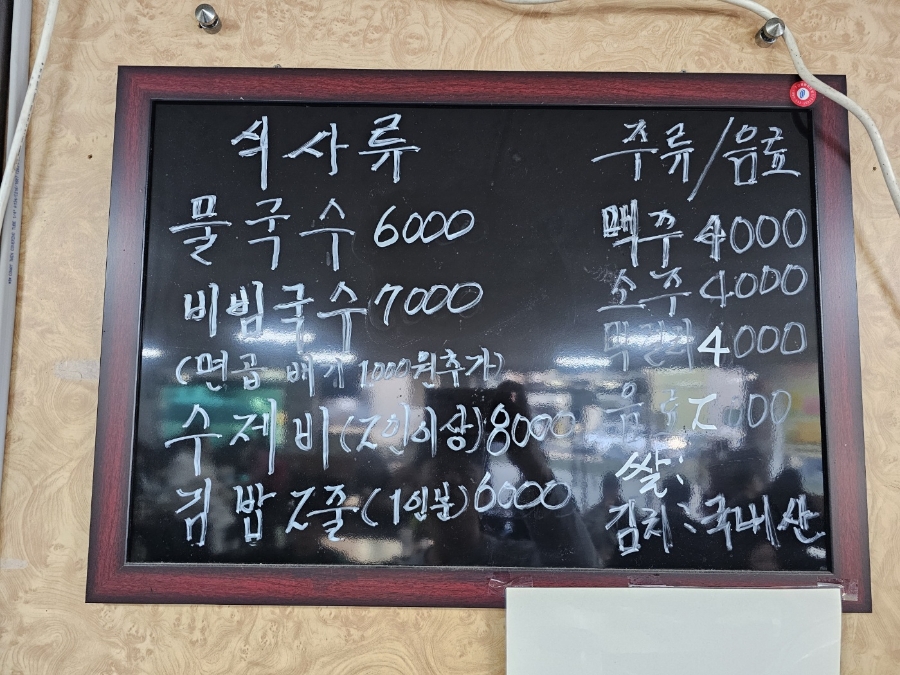 식사류
물국수 6000
비빔국수 7000
(면곱배기 1000원추가)
수제비(2인이상) 8000
김밥 2줄(1인분) 6000
주류/음료
맥주 4000
소주 4000
막걸리 4000
음료 2000
쌀:
김치: 국내산